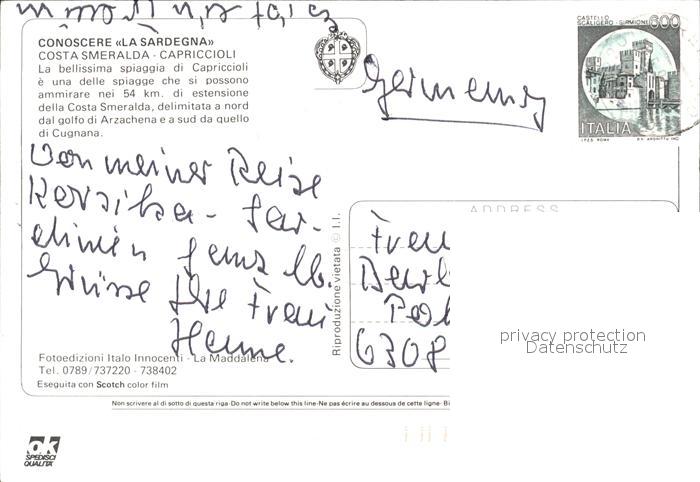 CONOSCERE «LA SARDEGNA»
COSTA SMERALDA - CAPRICCIOLI
La bellissima spiaggia di Capriccioli
è una delle spiagge che si possono
ammirare nei 54 km. di estensione
della Costa Smeralda, delimitata a nord
dal golfo di Arzachena e a sud da quello
di Cugnana.
CASTELLO
SCALIGERO - SIRMIONE
600
ITALIA
I.P.Z.S. ROMA
Germany
Von meiner Reise
Korsika - Sar-
dinien ganz lb.
Grüsse Ihre Frau
Henne.
ADDRESS
Frau
6308
Riproduzione vietata © I.I.
Fotoedizioni Italo Innocenti - La Maddalena
Tel. 0789/737220 - 738402
Eseguita con Scotch color film
Non scrivere al di sotto di questa riga-Do not write below this line-Ne pas écrire au dessous de cette ligne-
ok
SPEDISCI
QUALITA'
privacy protection
Datenschutz